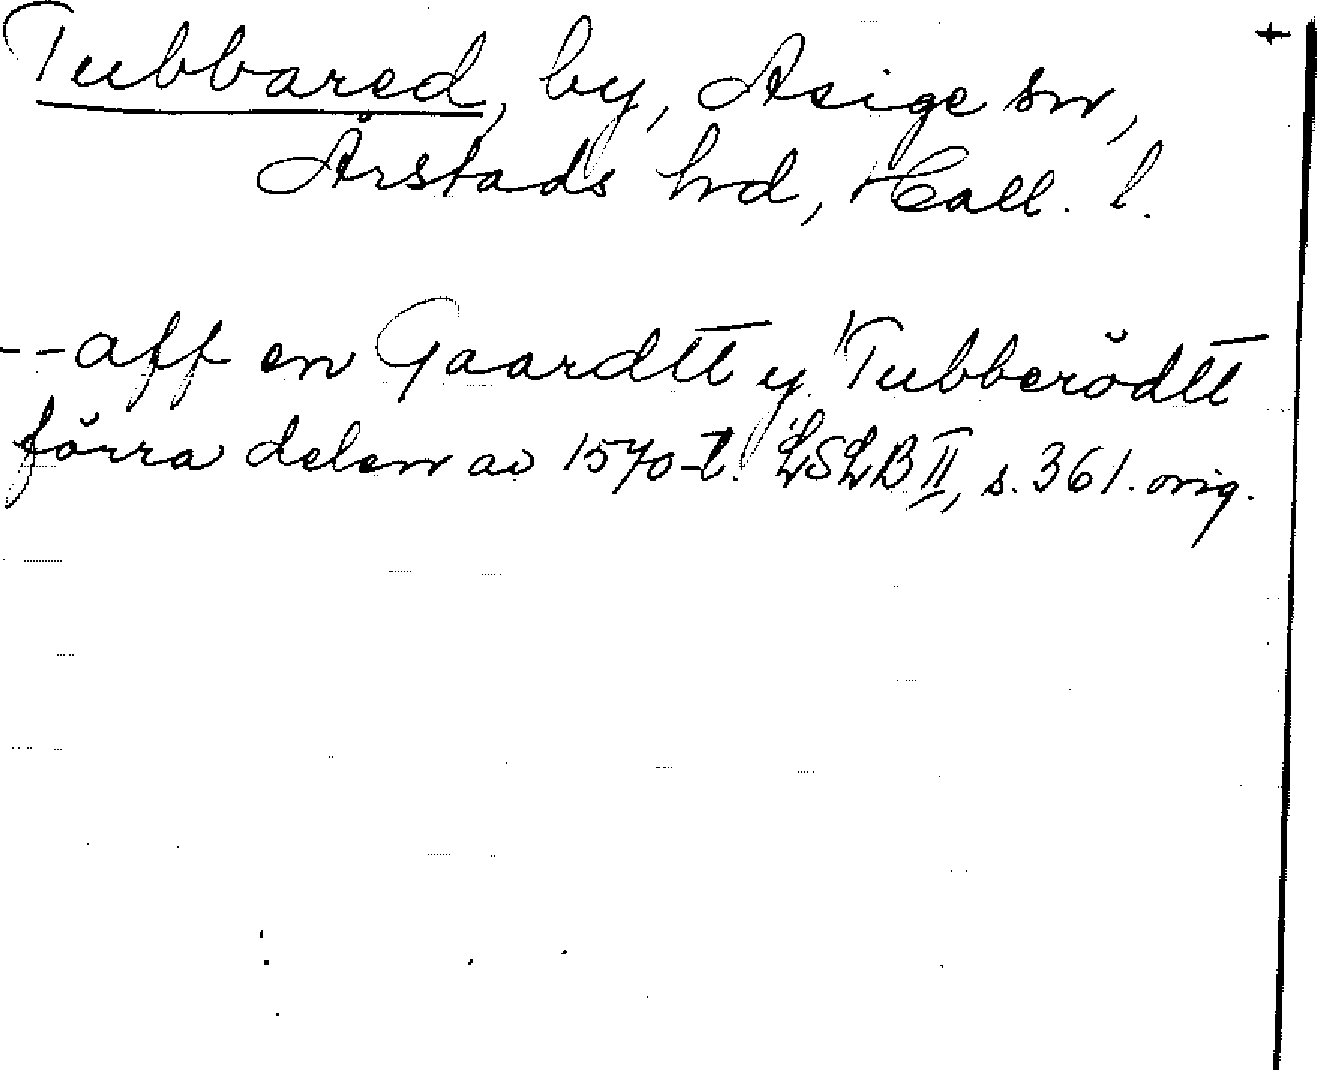 +
Tubbared, by, Asige sn,
Årstads hd, Hall. l.
--aff en Gaardtt y Tubberödtt
förra delen av 1570-t. LSLB II, s. 361. orig.